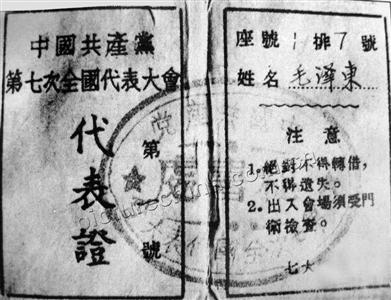 中國共產黨
第七次全國代表大會
代表證
第
號
座號 1 排 7 號
姓名 毛澤東
注意
1. 絕對不得轉借,
不得遺失。
2. 出入會場須受門
衛檢查。
七大